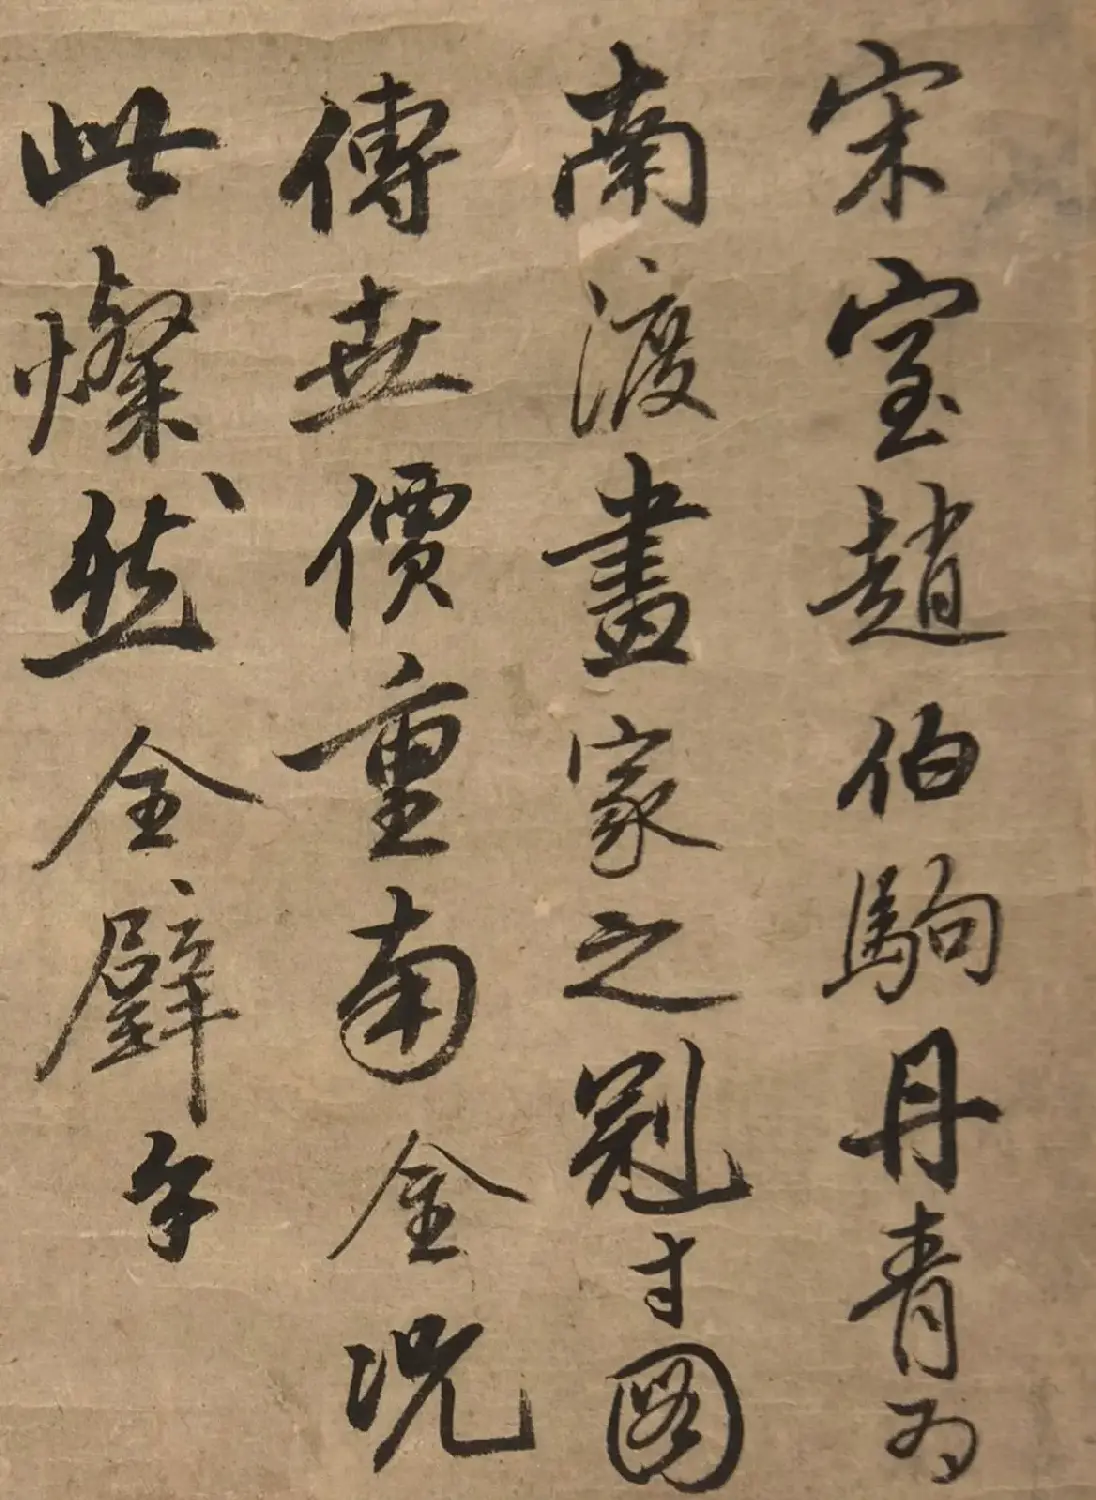 宋室趙伯駒丹青為
南渡畫家之冠寸圖
傳世價重南金況
此燦然全璧乎